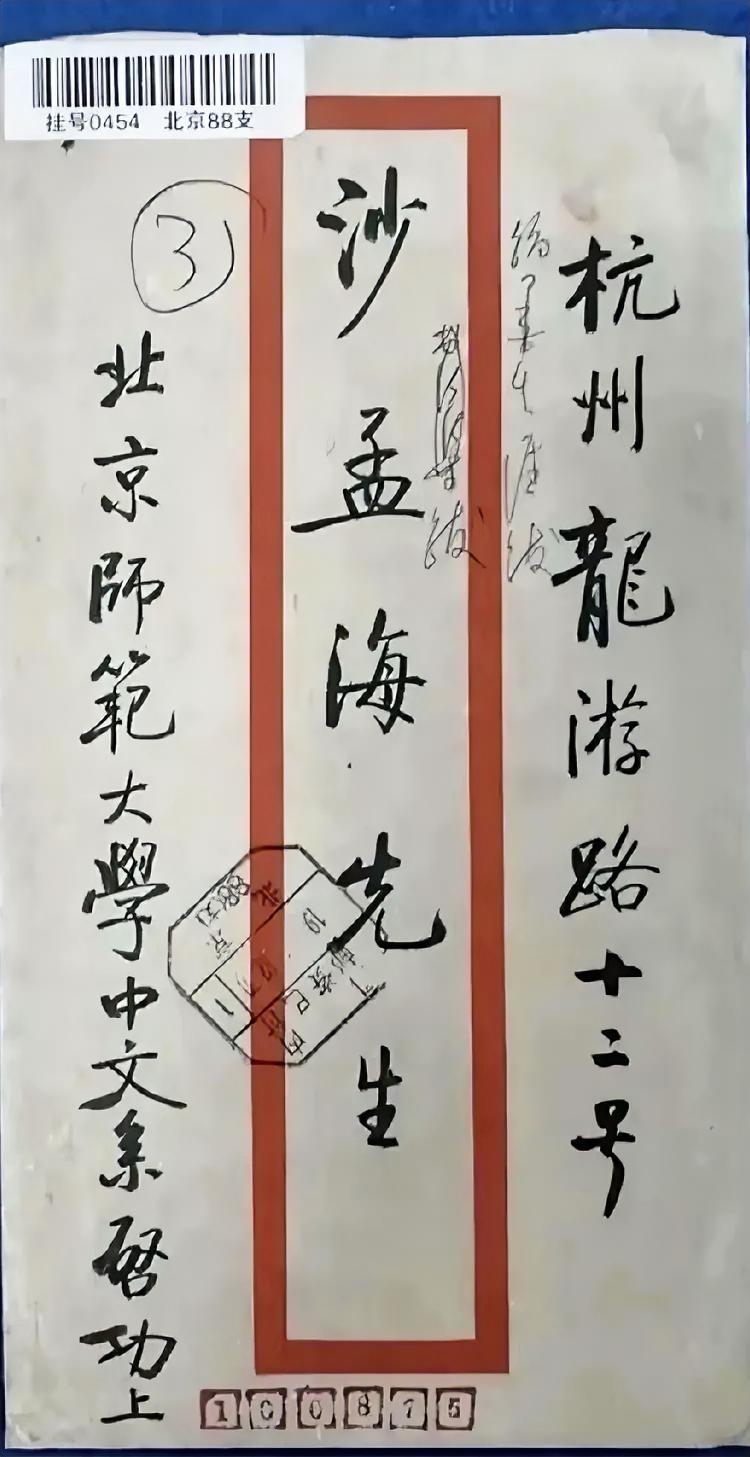 挂号0454 北京88支
杭州龍游路十二号
沙孟海先生
③
北京師範大學中文系啓功上
100875